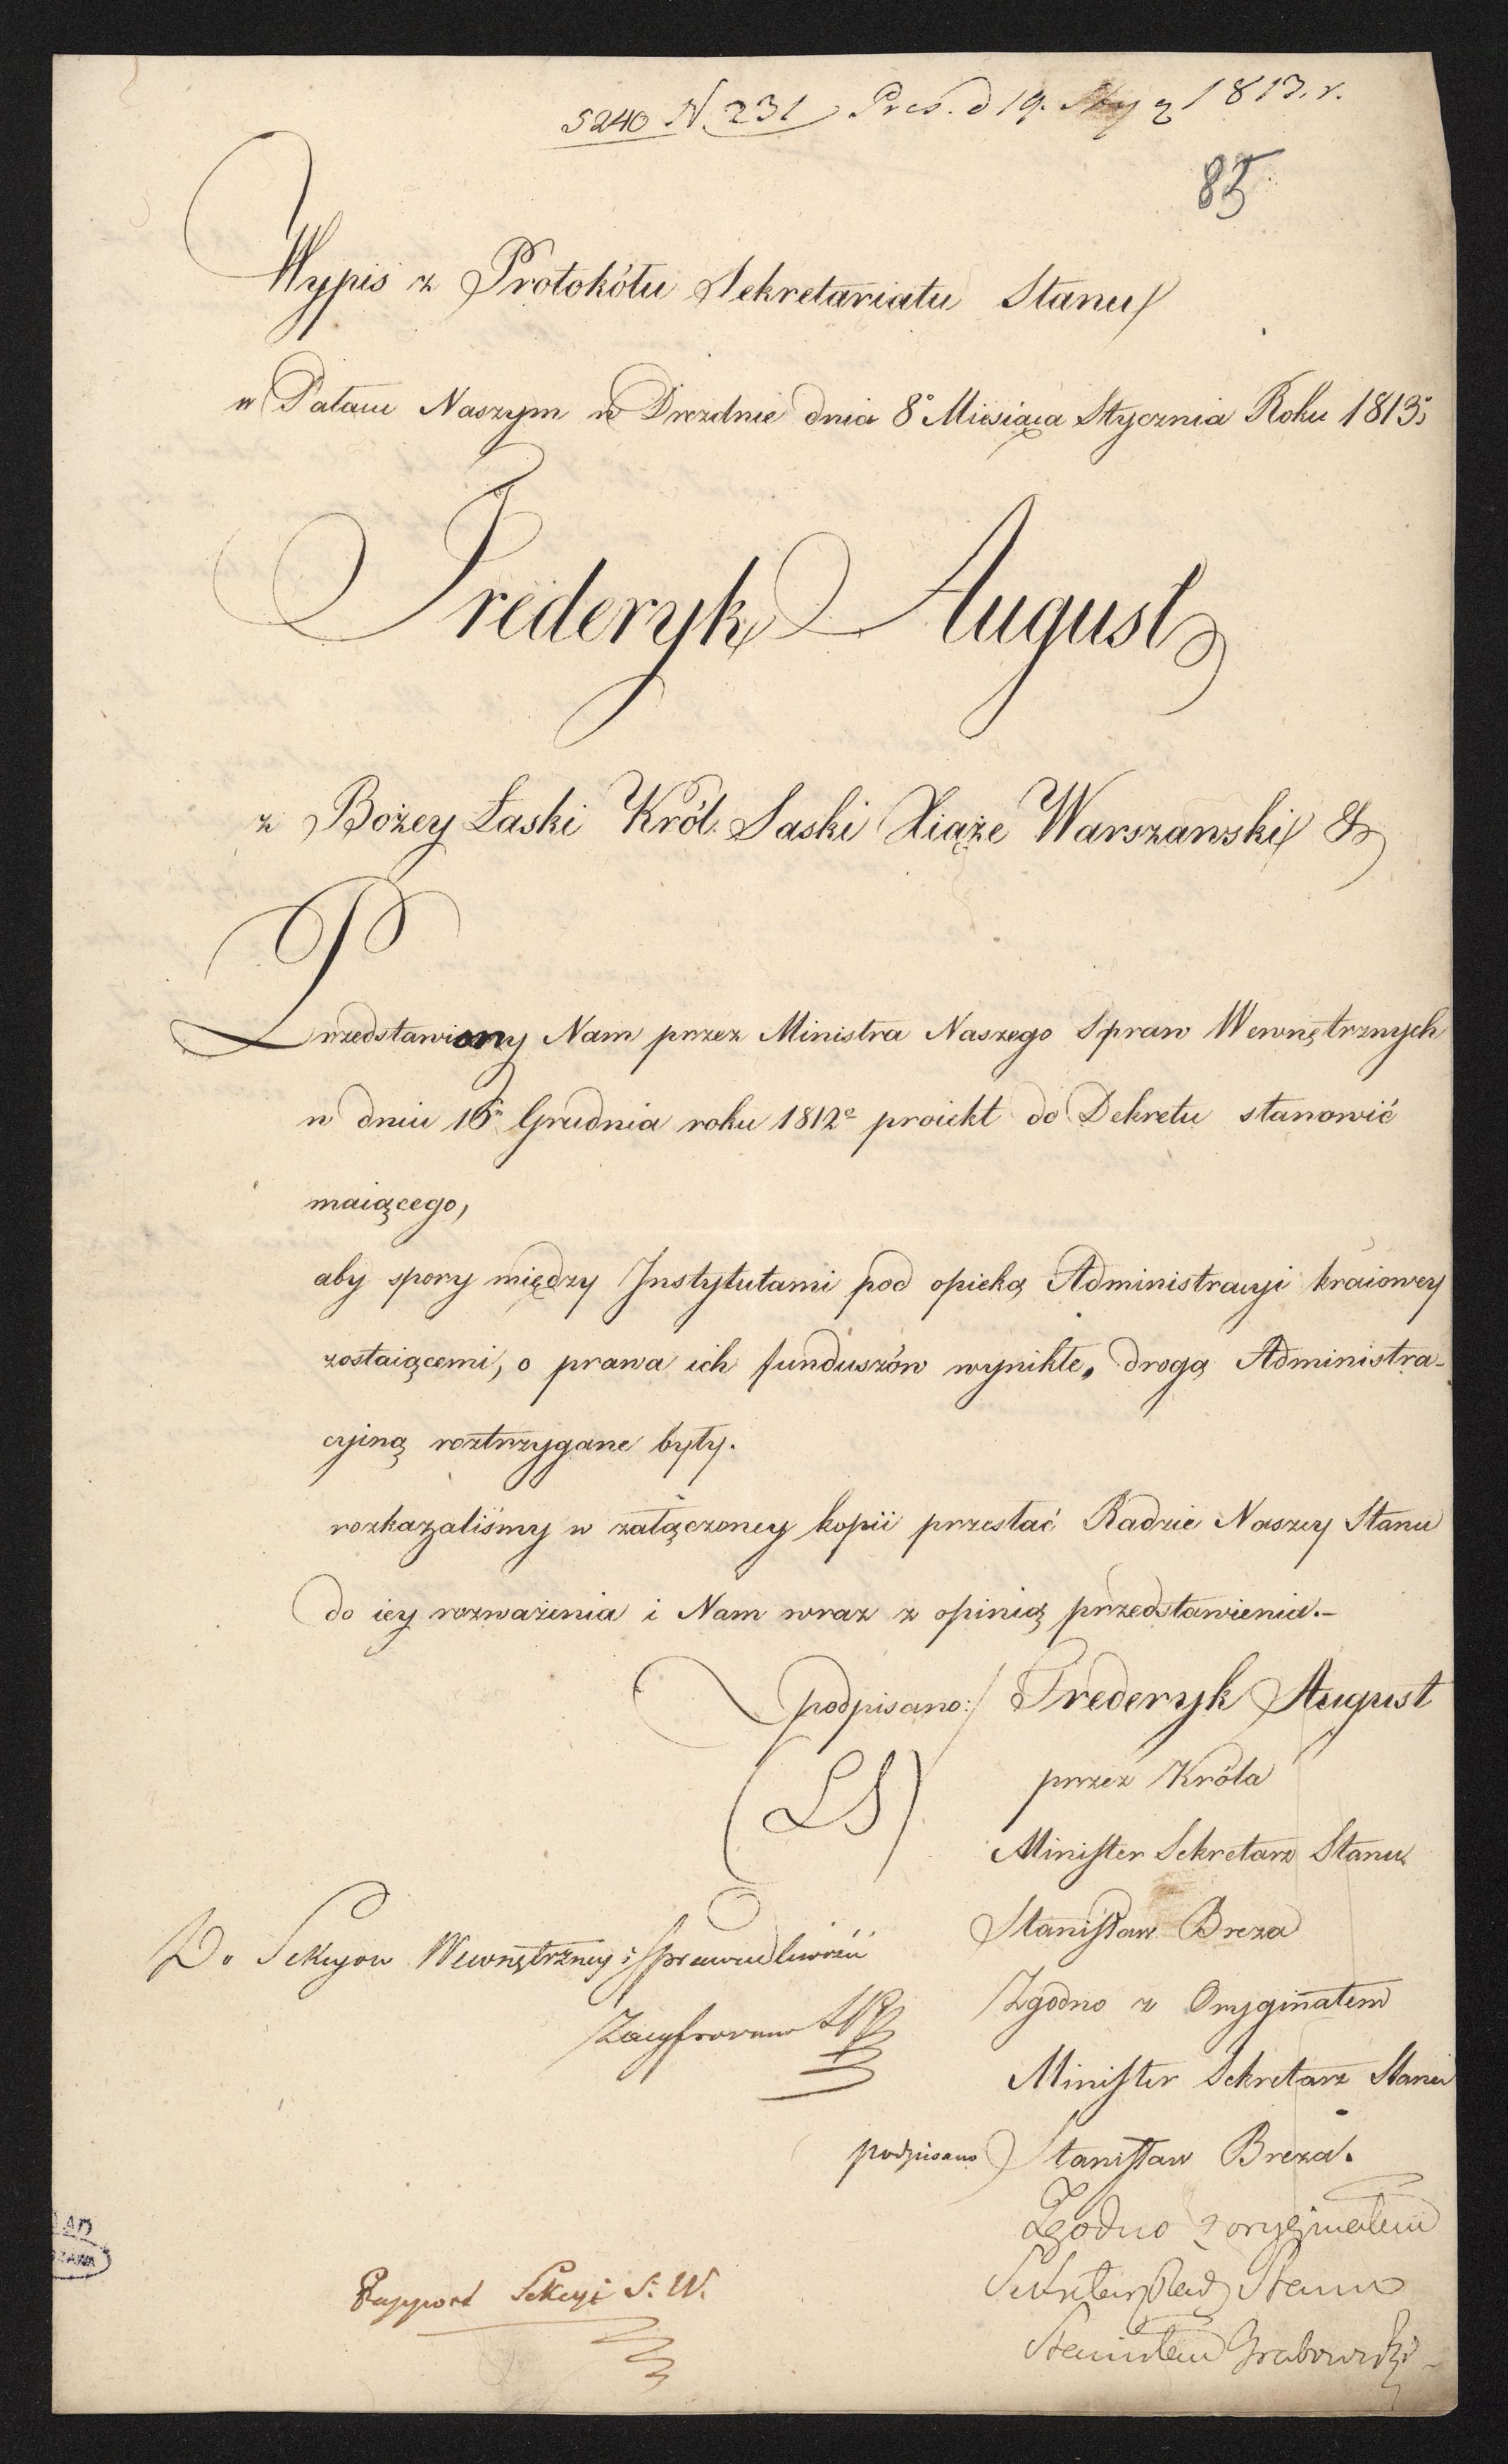 5240 N. 231 Pres. d 19. 1813. r.
85
Wypis z Protokółu Sekretariatu Stanu
w Pałacu Naszym w Dreźdnie dnia 8º Miesiąca Stycznia Roku 1813º
Frederyk August
z Bożey Łaski Król Saski Xiąże Warszawski &
Przedstawiony Nam przez Ministra Naszego Spraw Wewnętrznych
w dniu 16º Grudnia roku 1812º proiekt do Dekretu stanowić
maiącego,
aby spory między Instytutami pod opieką Administracyi kraiowey
zostaiącemi, o prawa ich funduszów wynikłe, drogą Administra-
cyiną roztrzygane były.
rozkazaliśmy w załączoney kopii przesłać Radzie Naszey Stanu
do iey rozważenia i Nam wraz z opinią przedstawienia.-
podpisano:/ Frederyk August
(LS)
przez Króla
Minister Sekretarz Stanu
Stanisław Breza
Do Sekcyow Wewnętrzney i Sprawiedliwości
Zacyfrowano
Zgodno z Oryginałem
Minister Sekretarz Stanu
podpisano) Stanisław Breza.
Zgodno z oryginałem
Sekretarz Rady Stanu
Stanisław Grabowski
Rapport Sekcyi S. W.